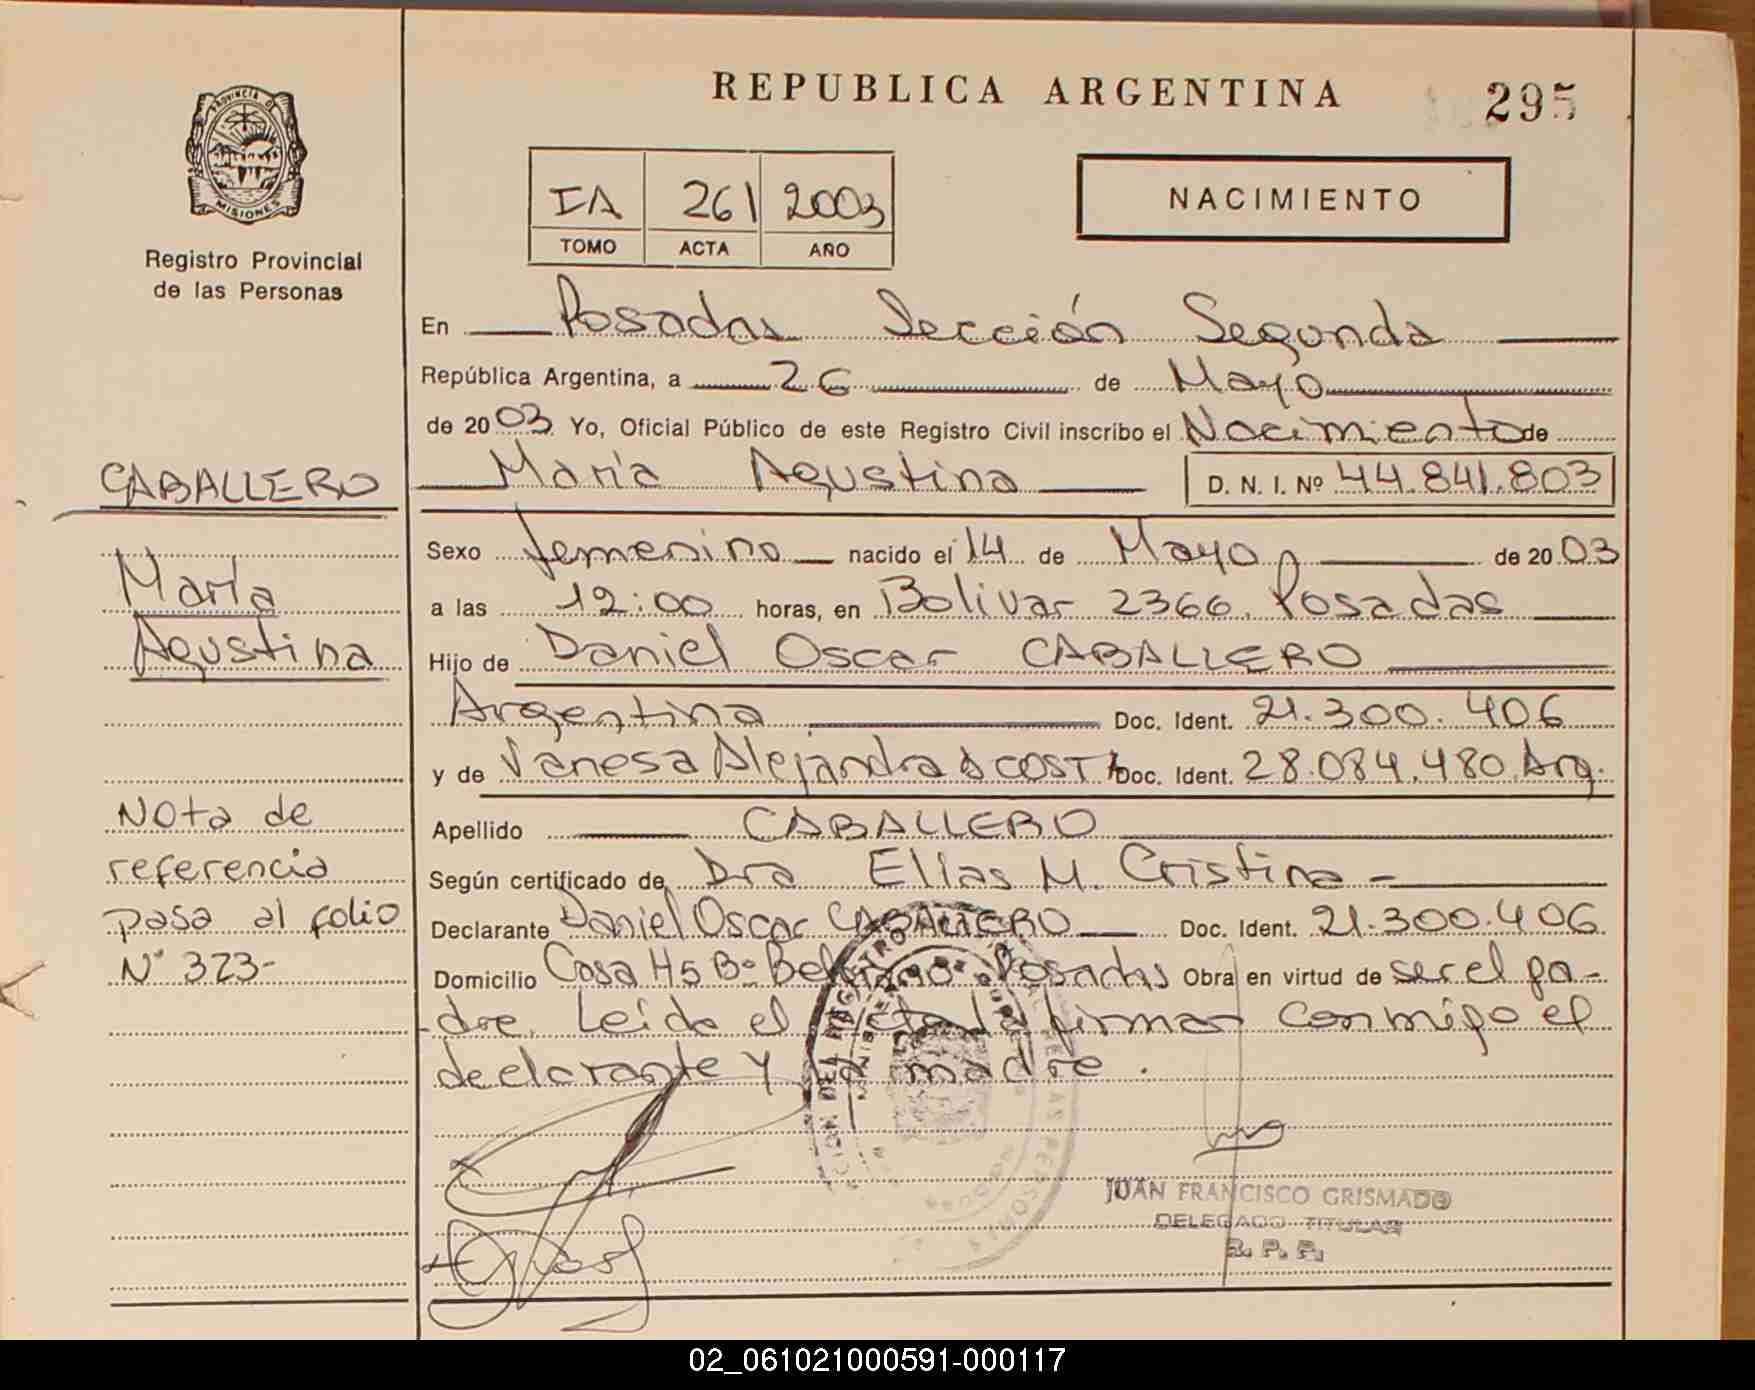 REPUBLICA ARGENTINA
295
PROVINCIA DE
MISIONES
Registro Provincial
de las Personas
IA 261 2003
TOMO ACTA AÑO
NACIMIENTO
En Posadas Sección Segunda
República Argentina, a 26 de Mayo
de 2003 Yo, Oficial Público de este Registro Civil inscribo el Nacimiento de
María Agustina D. N. I. Nº 44.841.803
CABALLERO
María
Agustina
Sexo femenino nacido el 14 de Mayo de 2003
a las 12:00 horas, en Bolivar 2366. Posadas
Hijo de Daniel Oscar CABALLERO
Argentina Doc. Ident. 21.300.406
y de Vanesa Alejandra ACOSTA Doc. Ident. 28.084.480 Arg.
Apellido CABALLERO
Según certificado de Dra Elias M. Cristina -
Declarante Daniel Oscar CABALLERO Doc. Ident. 21.300.406
Domicilio Casa H5 Bº Belgrano Posadas Obra en virtud de ser el pa-
dre. Leida el acta la firman conmigo el
declarante y la madre.
Nota de
referencia
pasa al folio
Nº 323-
JUAN FRANCISCO GRISMADO
DELEGADO TITULAR
R. P. P.
02_061021000591-000117